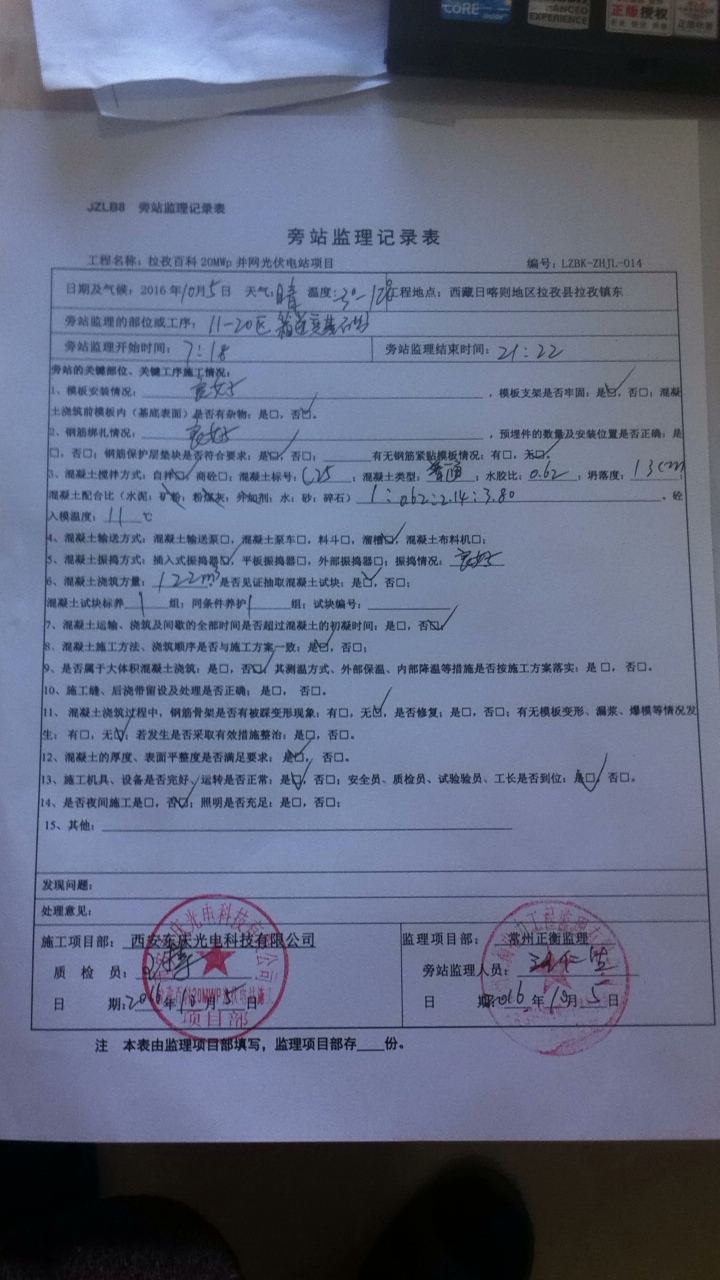 CORE
ENHANCED
EXPERIENCE
正版授权
JZLB8 旁站监理记录表
旁站监理记录表
工程名称：拉孜百科20MWp并网光伏电站项目 编号：LZBK-ZHJL-014
日期及气候：2016年10月5日 天气：晴 温度：3°-1 工程地点：西藏日喀则地区拉孜县拉孜镇东
旁站监理的部位或工序：11-20区
旁站监理开始时间：7：18 旁站监理结束时间：21：22
旁站的关键部位、关键工序施工情况：
1、模板安装情况：良好，模板支架是否牢固：是☑，否□；混凝
土浇筑前模板内（基底表面）是否有杂物：是□，否☑。
2、钢筋绑扎情况：良好，预埋件的数量及安装位置是否正确：是
□，否□；钢筋保护层垫块是否符合要求：是☑，否□；有无钢筋紧贴模板情况：有□，无☑。
3、混凝土搅拌方式：自拌☑，商砼□；混凝土标号：C25；混凝土类型：普通；水胶比：0.62；坍落度：13cm；
混凝土配合比（水泥：矿粉：粉煤灰：外加剂：水：砂：碎石）1：0.62：2.14：3.80。砼
入模温度：11℃
4、混凝土输送方式：混凝土输送泵□，混凝土泵车□，料斗□，溜槽☑，混凝土布料机□；
5、混凝土振捣方式：插入式振捣器☑，平板振捣器□，外部振捣器□；振捣情况：良好
6、混凝土浇筑方量：122m³是否见证抽取混凝土试块：是☑，否□；
混凝土试块标养1组；同条件养护1组；试块编号：
7、混凝土运输、浇筑及间歇的全部时间是否超过混凝土的初凝时间：是□，否☑
8、混凝土施工方法、浇筑顺序是否与施工方案一致：是☑，否□；
9、是否属于大体积混凝土浇筑：是□，否☑，其测温方式、外部保温、内部降温等措施是否按施工方案落实：是□，否□。
10、施工缝、后浇带留设及处理是否正确：是□，否□。
11、混凝土浇筑过程中，钢筋骨架是否有被踩变形现象：有□，无☑，是否修复：是□，否□；有无模板变形、漏浆、爆模等情况发
生：有□，无☑；若发生是否采取有效措施整治：是□，否□。
12、混凝土的厚度、表面平整度是否满足要求：是☑，否□。
13、施工机具、设备是否完好、运转是否正常：是☑，否□；安全员、质检员、试验验员、工长是否到位：是☑，否□。
14、是否夜间施工是□，否☑；照明是否充足：是□，否□；
15、其他：
发现问题：
处理意见：
施工项目部：西安东庆光电科技有限公司 监理项目部：常州正衡监理
质 检 员： 旁站监理人员：
日 期：2016年10月5日 日 期：2016年10月5日
项目部
注 本表由监理项目部填写，监理项目部存____份。